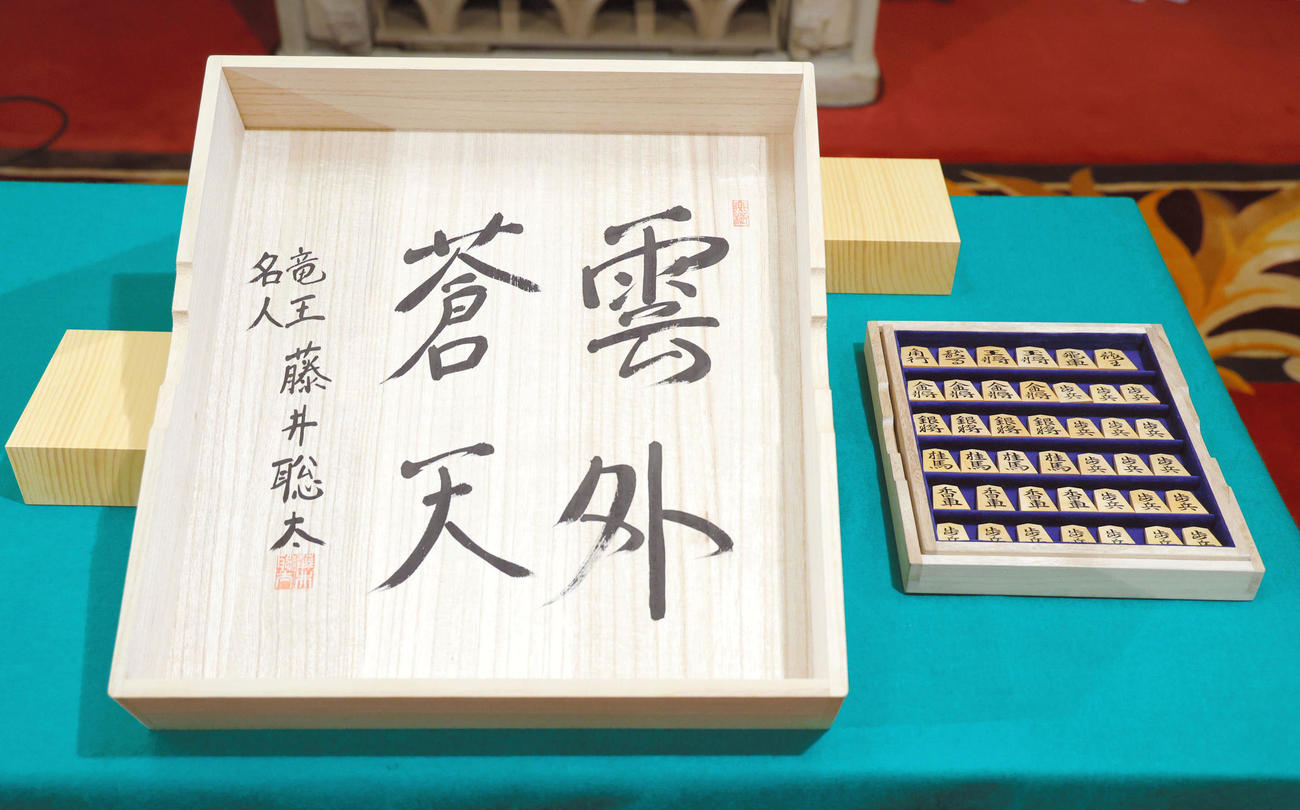 雲外
蒼天
竜王
名人
藤井聡太
角行 王将 玉将 飛車
金将 金将 金将 金将 歩兵 歩兵 歩兵
銀将 銀将 銀将 銀将 歩兵 歩兵 歩兵
桂馬 桂馬 桂馬 桂馬 歩兵 歩兵 歩兵
香車 香車 香車 香車 歩兵 歩兵 歩兵
歩兵 歩兵 歩兵 歩兵 歩兵 歩兵 歩兵